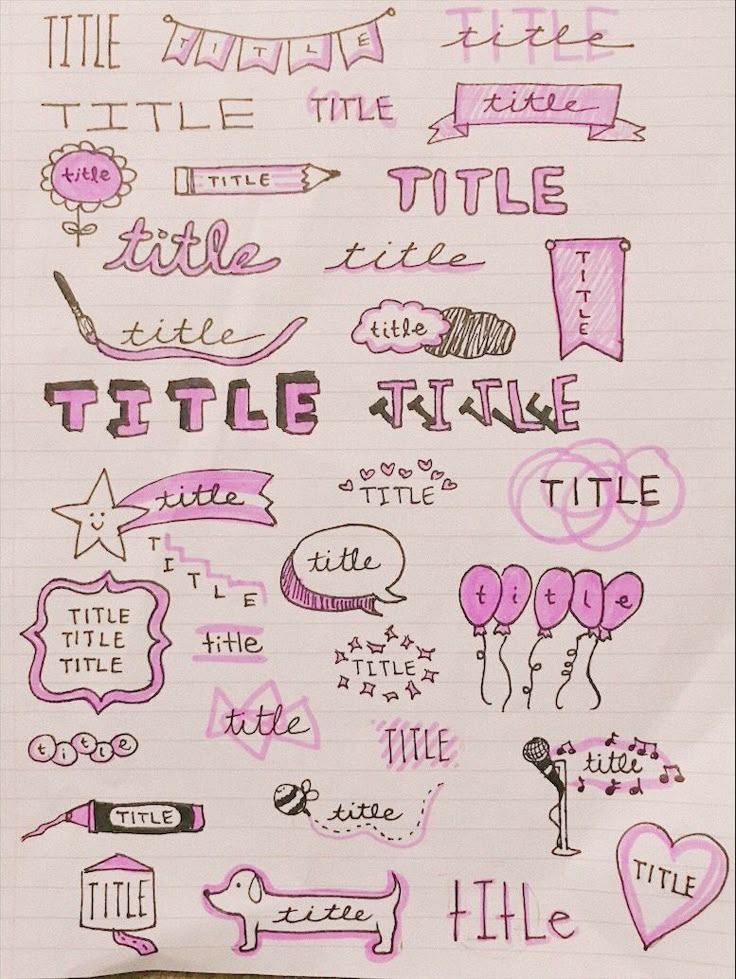 TITLE
TITLE
TITLE
title
TITLE
TITLE
title
title
TITLE
TITLE
title
title
TITLE
title
title
TITLE
TITLE
title
TITLE
TITLE
TITLE
title
TITLE
TITLE
TITLE
title
TITLE
title
title
title
TITLE
title
TITLE
title
TITLE
TITLE
title
tItLe